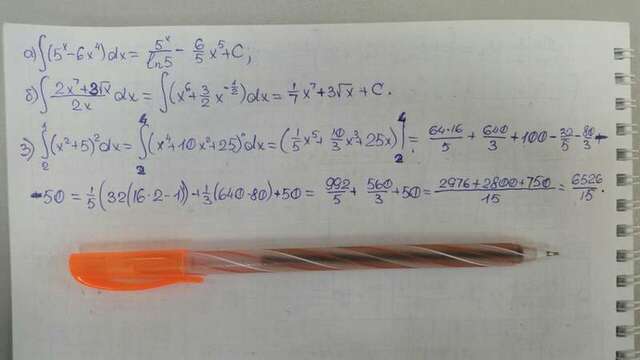 а) ∫(5ˣ-6x⁴)dx = 5ˣ/ln5 - 6/5 x⁵+C;
б) ∫ (2x⁷+3√x)/2x dx = ∫(x⁶+3/2 x^(-1/2))dx = 1/7 x⁷+3√x+C.
3) ∫₂⁴(x²+5)²dx = ∫₂⁴(x⁴+10x²+25)dx = (1/5 x⁵+10/3 x³+25x)|₂⁴ = 64·16/5 + 640/3 +100 - 32/5 - 80/3 -
-50 = 1/5(32(16·2-1))+1/3(640-80)+50 = 992/5 + 560/3 +50 = (2976+2800+750)/15 = 6526/15.